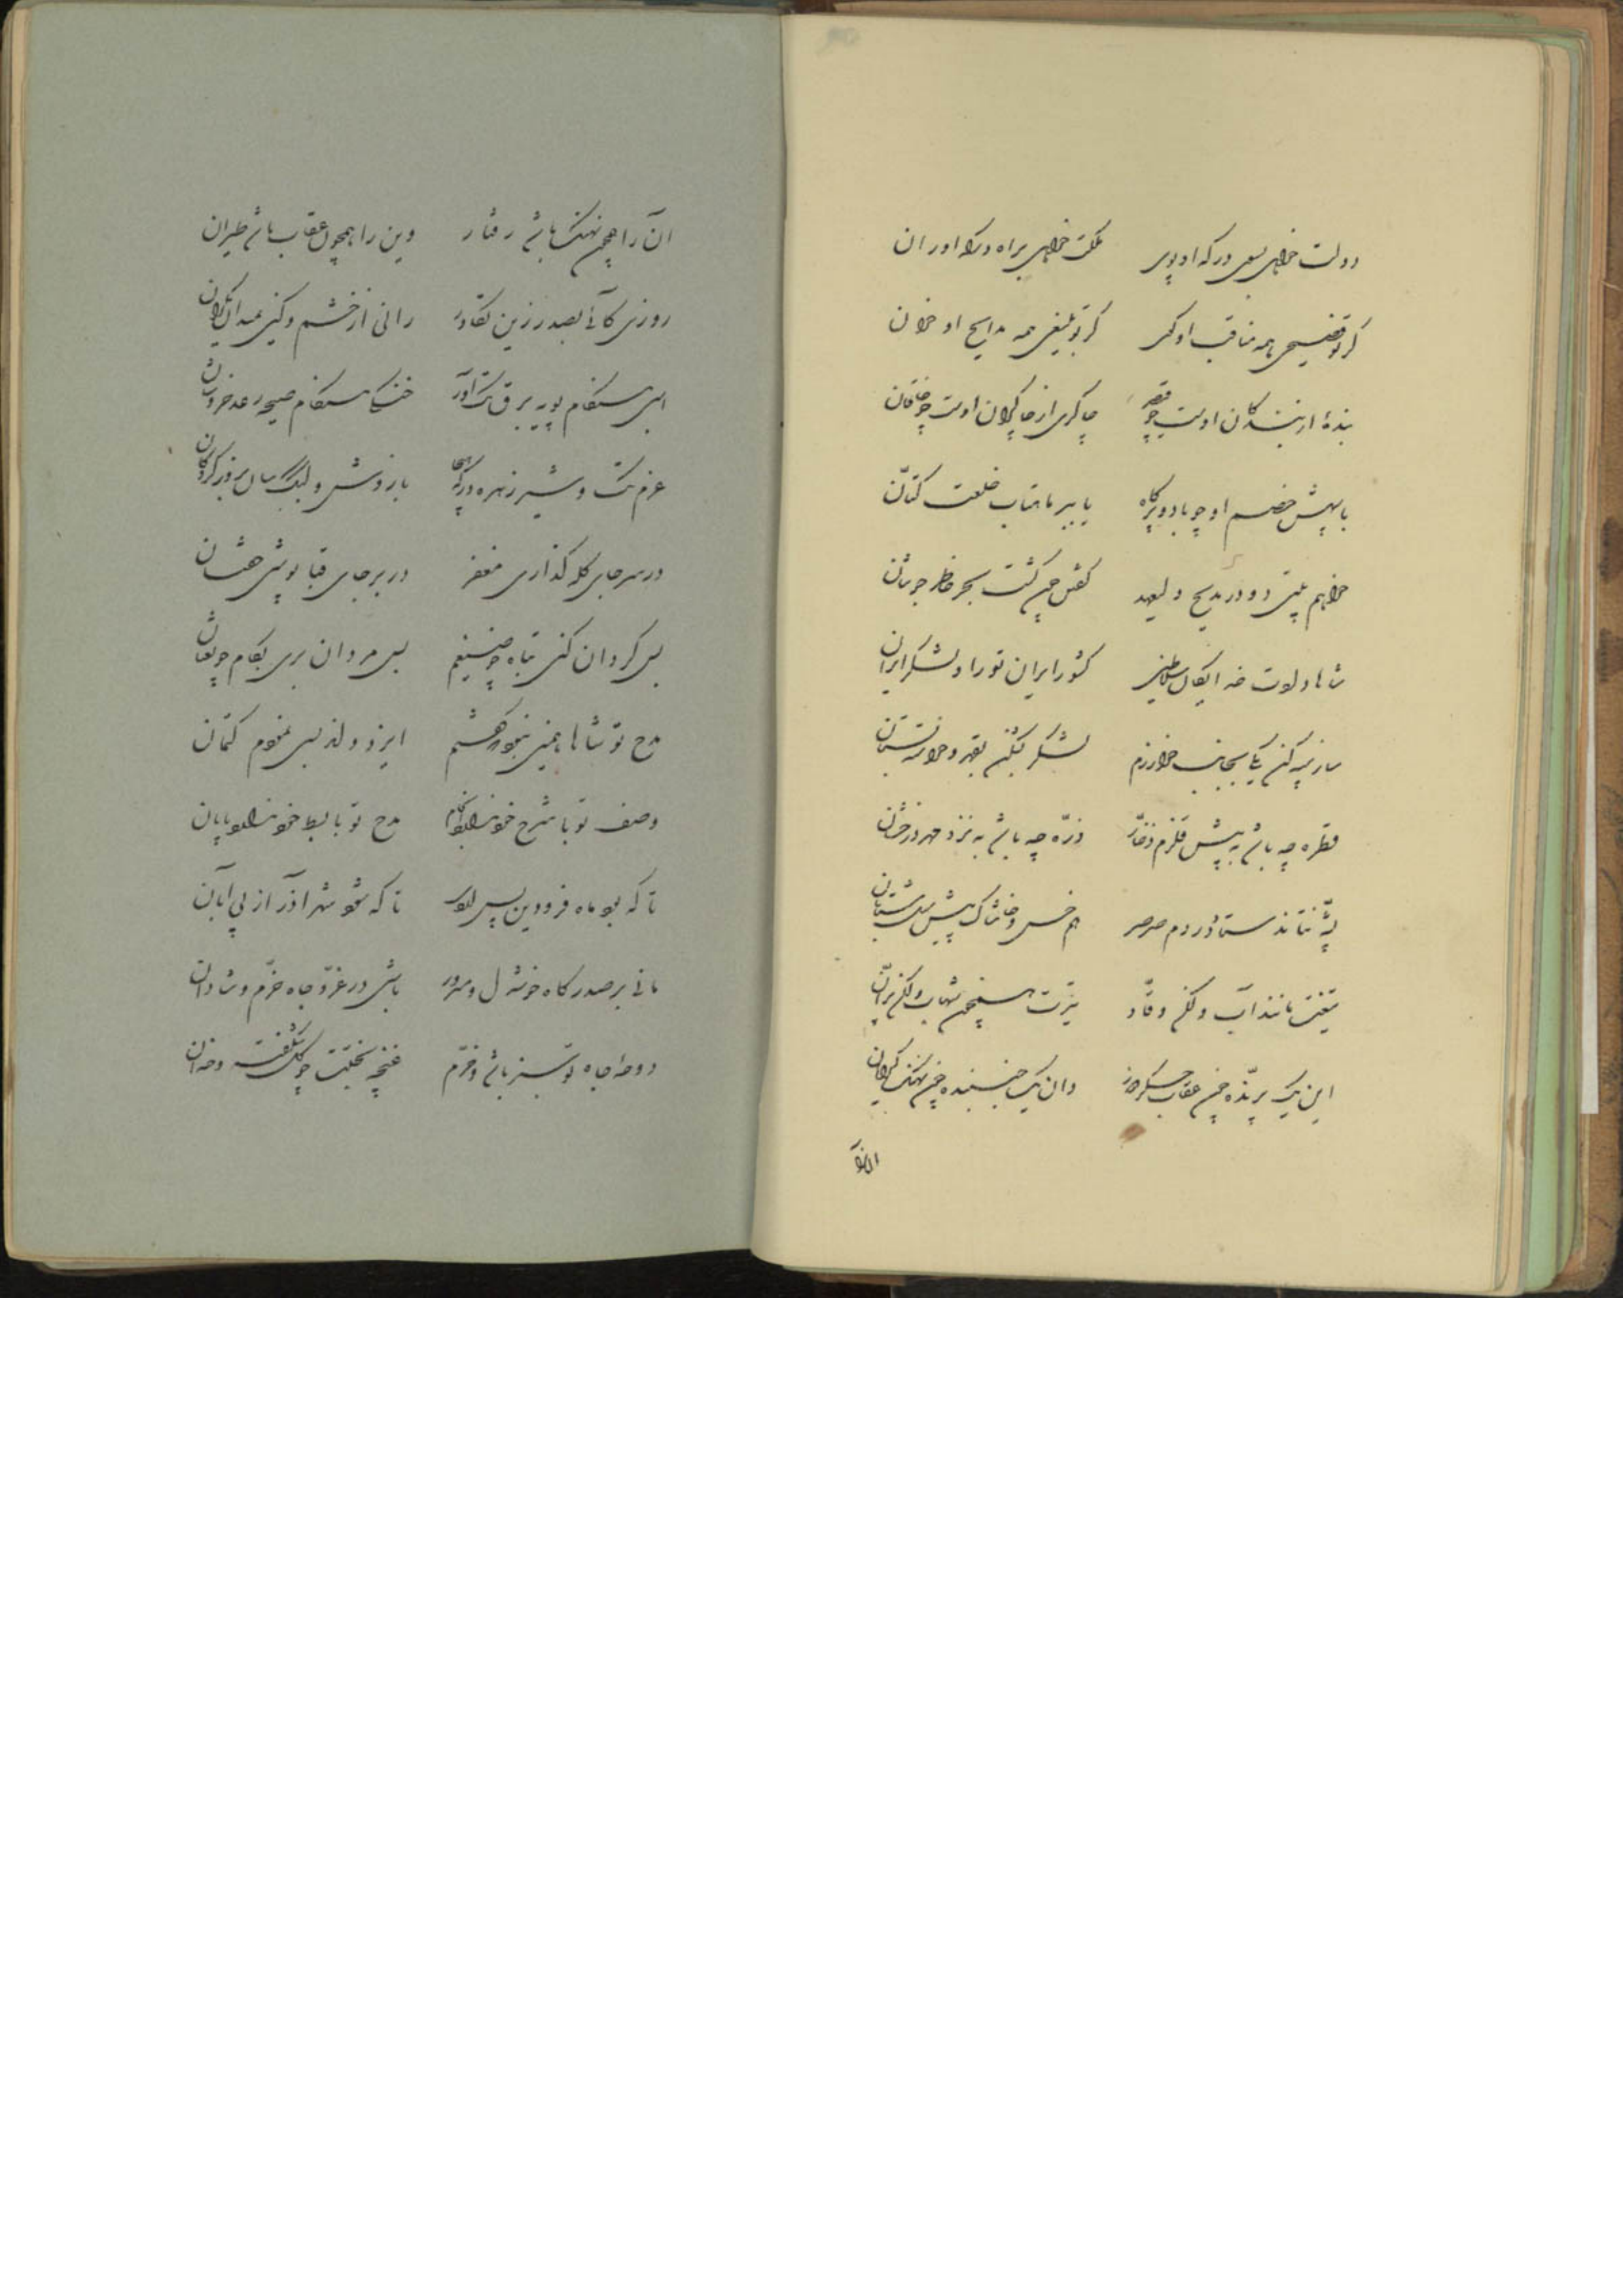 دولت خواهی بسوی درگه او پوی مکنت خواهی براه درگه او ران
گر تو فصیحی همه مناقب او گوی گر تو بلیغی همه مدایح او خوان
بندهٔ از بندگان اوست چو قیصر چاکری از چاکران اوست چو خاقان
با سپهش خصم او چو باد و پرکاه یا ببر ماهتاب خلعت کتّان
خواهم بیتی دو در مدیح ولیعهد چون گشت بحر خاطر جوشان
شاها دولت خدایگان سلاطین کشور ایران تو را و لشکر ایران
ساز سپه کن یکی بجانب خوارزم لشکر بشکن بقهر و خواسته بستان
قطره چه باشد به پیش قلزم ذخّار ذرّه چه باشد به نزد مهر درخشان
پشّه نتاند ستاد در دم صرصر هم خس و خاشاک پیش سیل شتابان
تیغت مانند آب ولکن وقّاد تیرت همچون شهاب ولکن پرّان
این یک پرنده چون عقاب وان یک جنبنده چون نهنگ
ان را
ان را همچون نهنگ باشد رفتار وین را همچون عقاب باشد طیران
روزی کائی بصدر زین تکاور رانی از خشم و کین بمیدان یکران
ابری هنگام پویه برق تک آور خنگی هنگام صیحه رعد خروشان
عزم تک و شیر زهره درگه هیجا بازوش و پلنگ سان بروز
در سر جای کله گذاری مغفر در بر جای قبا بپوشی خفتان
بس گردان کنی تباه چو ضیغم بس مردان بری بکام چو ثعبان
مدح تو شاها همین نبود که گفتم ایزد داند بسی نمودم کتمان
وصف تو با شرح خود ندارد انجام مدح تو با بسط خود ندارد پایان
تا که بود ماه فرودین پس تا که شود شهر آذر از پی آبان
مانی بر صدر گاه خوشدل و مسرور باشی در عزّ و جاه خرّم و شادان
دوحه جاه تو سبز باشد و خرّم غنچه بختت چو گل شکفته و خندان